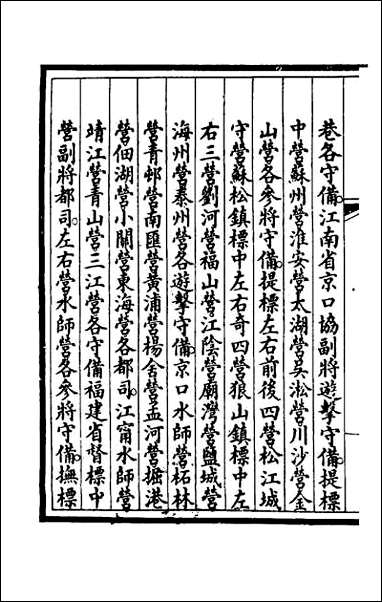 巷各守備江南省京口協副將遊擊守備提標
中營蘇州營淮安營太湖營吳淞營川沙營金
山營各參將守備提標左右前後四營松江城
守營蘇松鎮標中左右奇四營狼山鎮標中左
右三營劉河營福山營江陰營廟灣營鹽城營
海州營泰州營各遊擊守備京口水師營柘林
營青邨營南匯營黃浦營楊舍營孟河營掘港
營佃湖營小關營東海營各都司江甯水師營
靖江營青山營三江營各守備福建省督標中
營副將都司左右營水師營各參將守備撫標